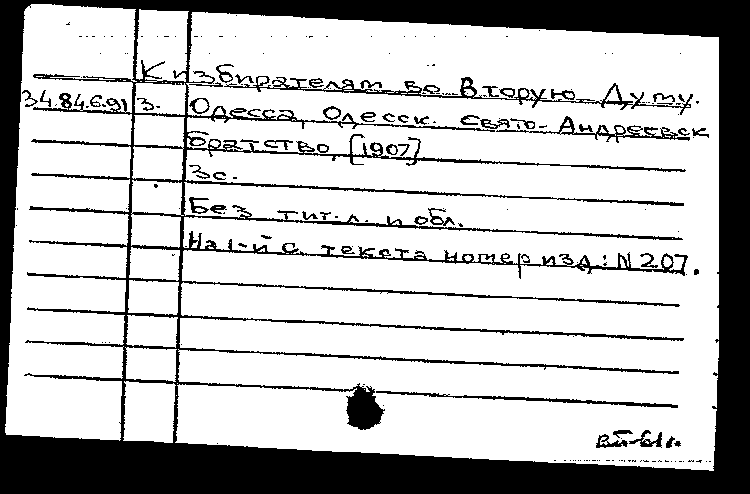 К избирателям во Вторую Думу.
34.84.6.91 3. Одесса, Одесск. Свято-Андреевск
братство, [1907]
3с.
Без тит.л. и обл.
На 1-й с. текста номер изд.: N 207.